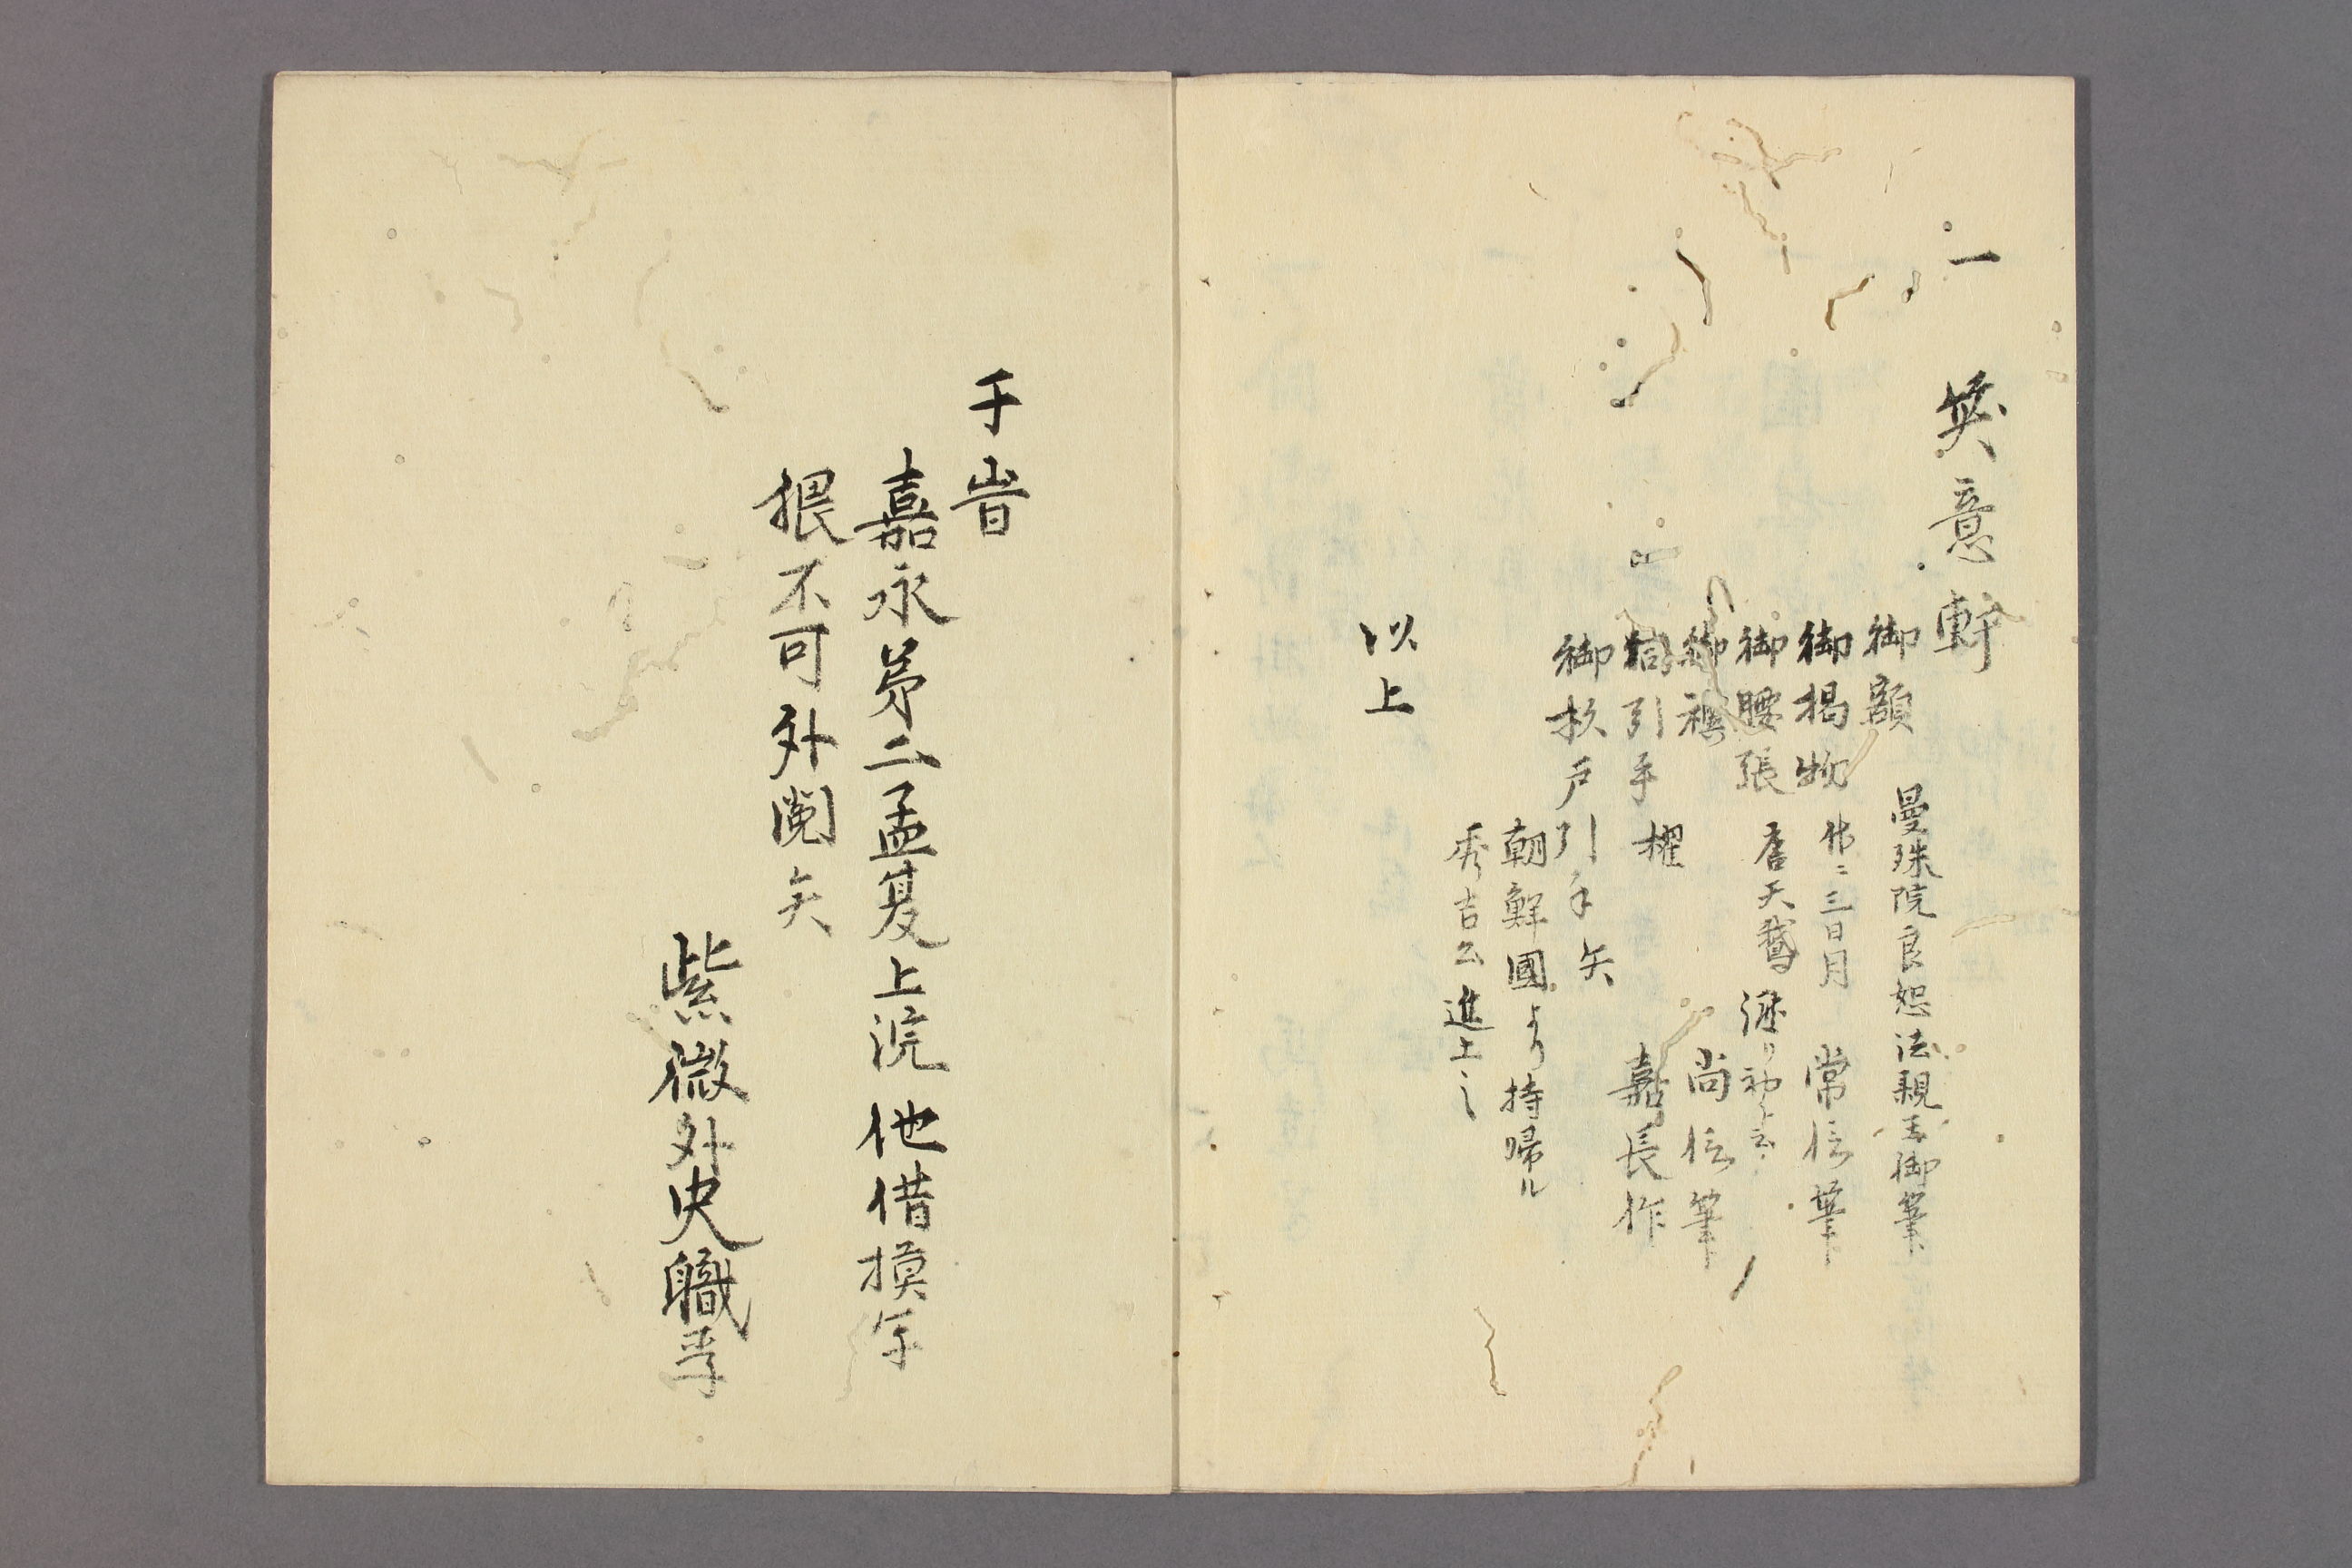 一 笑意軒
御額 曼殊院良恕法親王御筆
御掲物 竹ニ三日月 常信筆
御腰張 唐天鵞
御襖 尚信筆
同引手 櫂 嘉長作
御杉戸引手 矢
朝鮮國より持帰ル
秀吉公進上之
以上
于旹
嘉永第二孟夏上浣他借摸写
猥不可外閲矣
紫微外史職孚